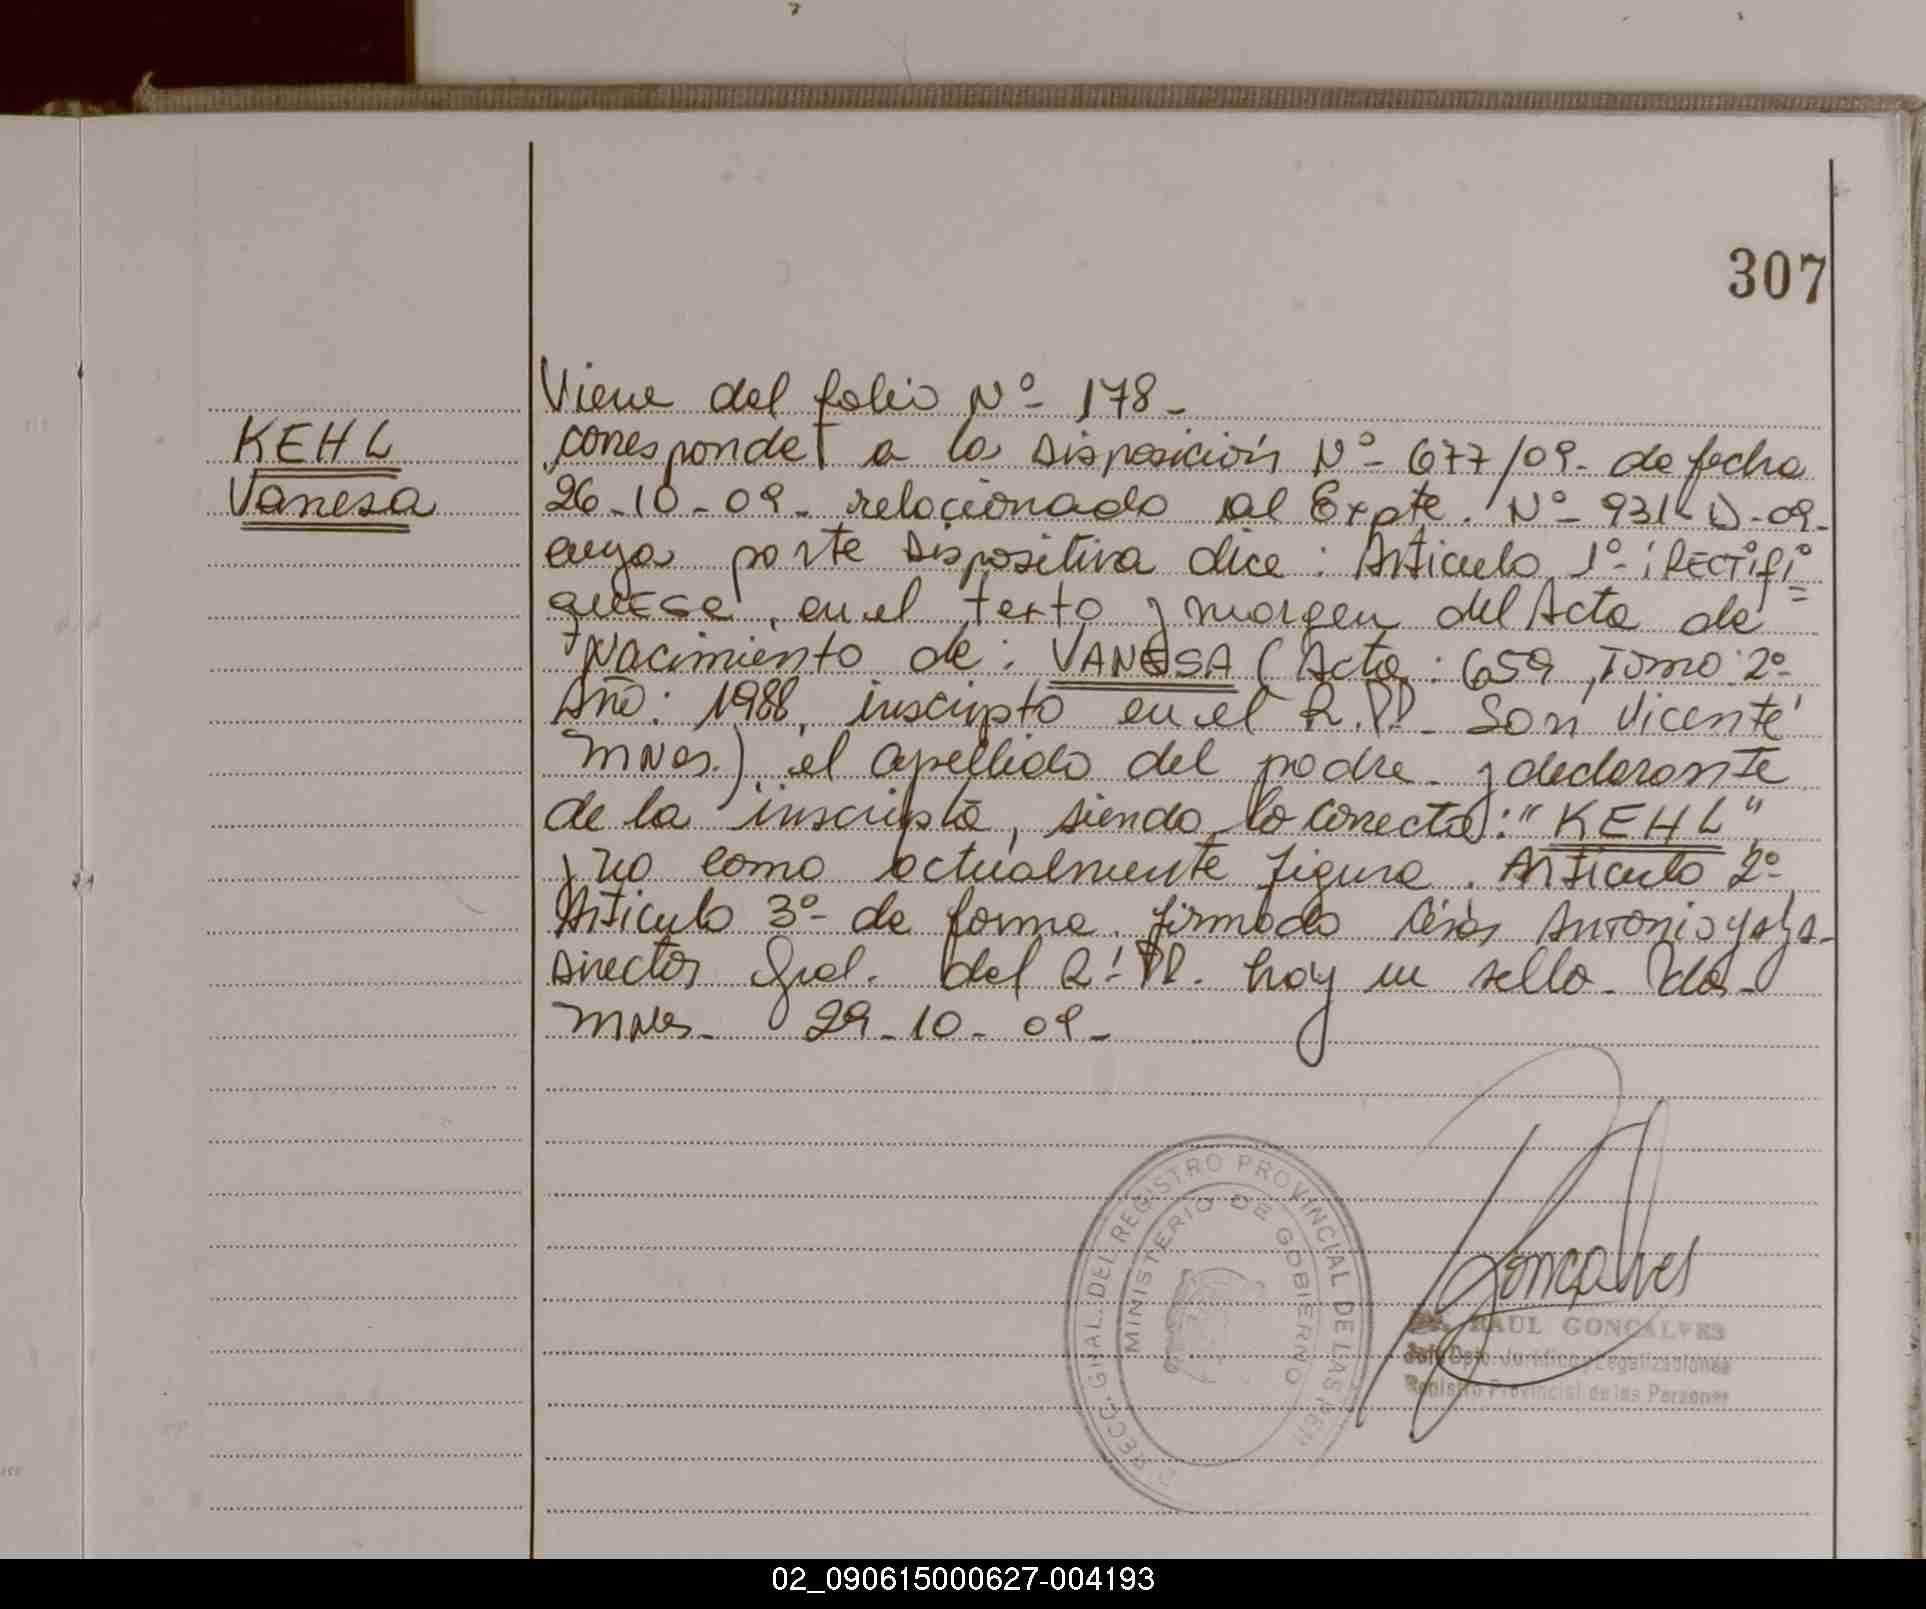 307
KEHL
Vanesa
Viene del folio Nº 178-
corresponde a la Disposición Nº 677/09- de fecha
26-10-09- relacionado al Expte. Nº 931-D-09-
cuya parte dispositiva dice: Articulo 1º: RECTIFI
QUESE, en el texto y margen del Acta de
Nacimiento de: VANESA (Acta: 659, Tomo: 2º
Año: 1988, inscripto en el R.PP. San Vicente
Mnes.) el apellido del padre y declarante
de la inscripta, siendo lo correcto: "KEHL"
y no como actualmente figura. Articulo 2º
Articulo 3º de forma. firmado Antonio
Director Gral. del R.PP. hay un sello. Pdas-
Mnes- 29-10-09-
DIRECC. GRAL. DEL REGISTRO PROVINCIAL DE LAS PER
MINISTERIO DE GOBIERNO
Gonçalves
RAUL GONCALVES
Jefe Dpto. Jurídico y Legalizaciones
Registro Provincial de las Personas
02_090615000627-004193